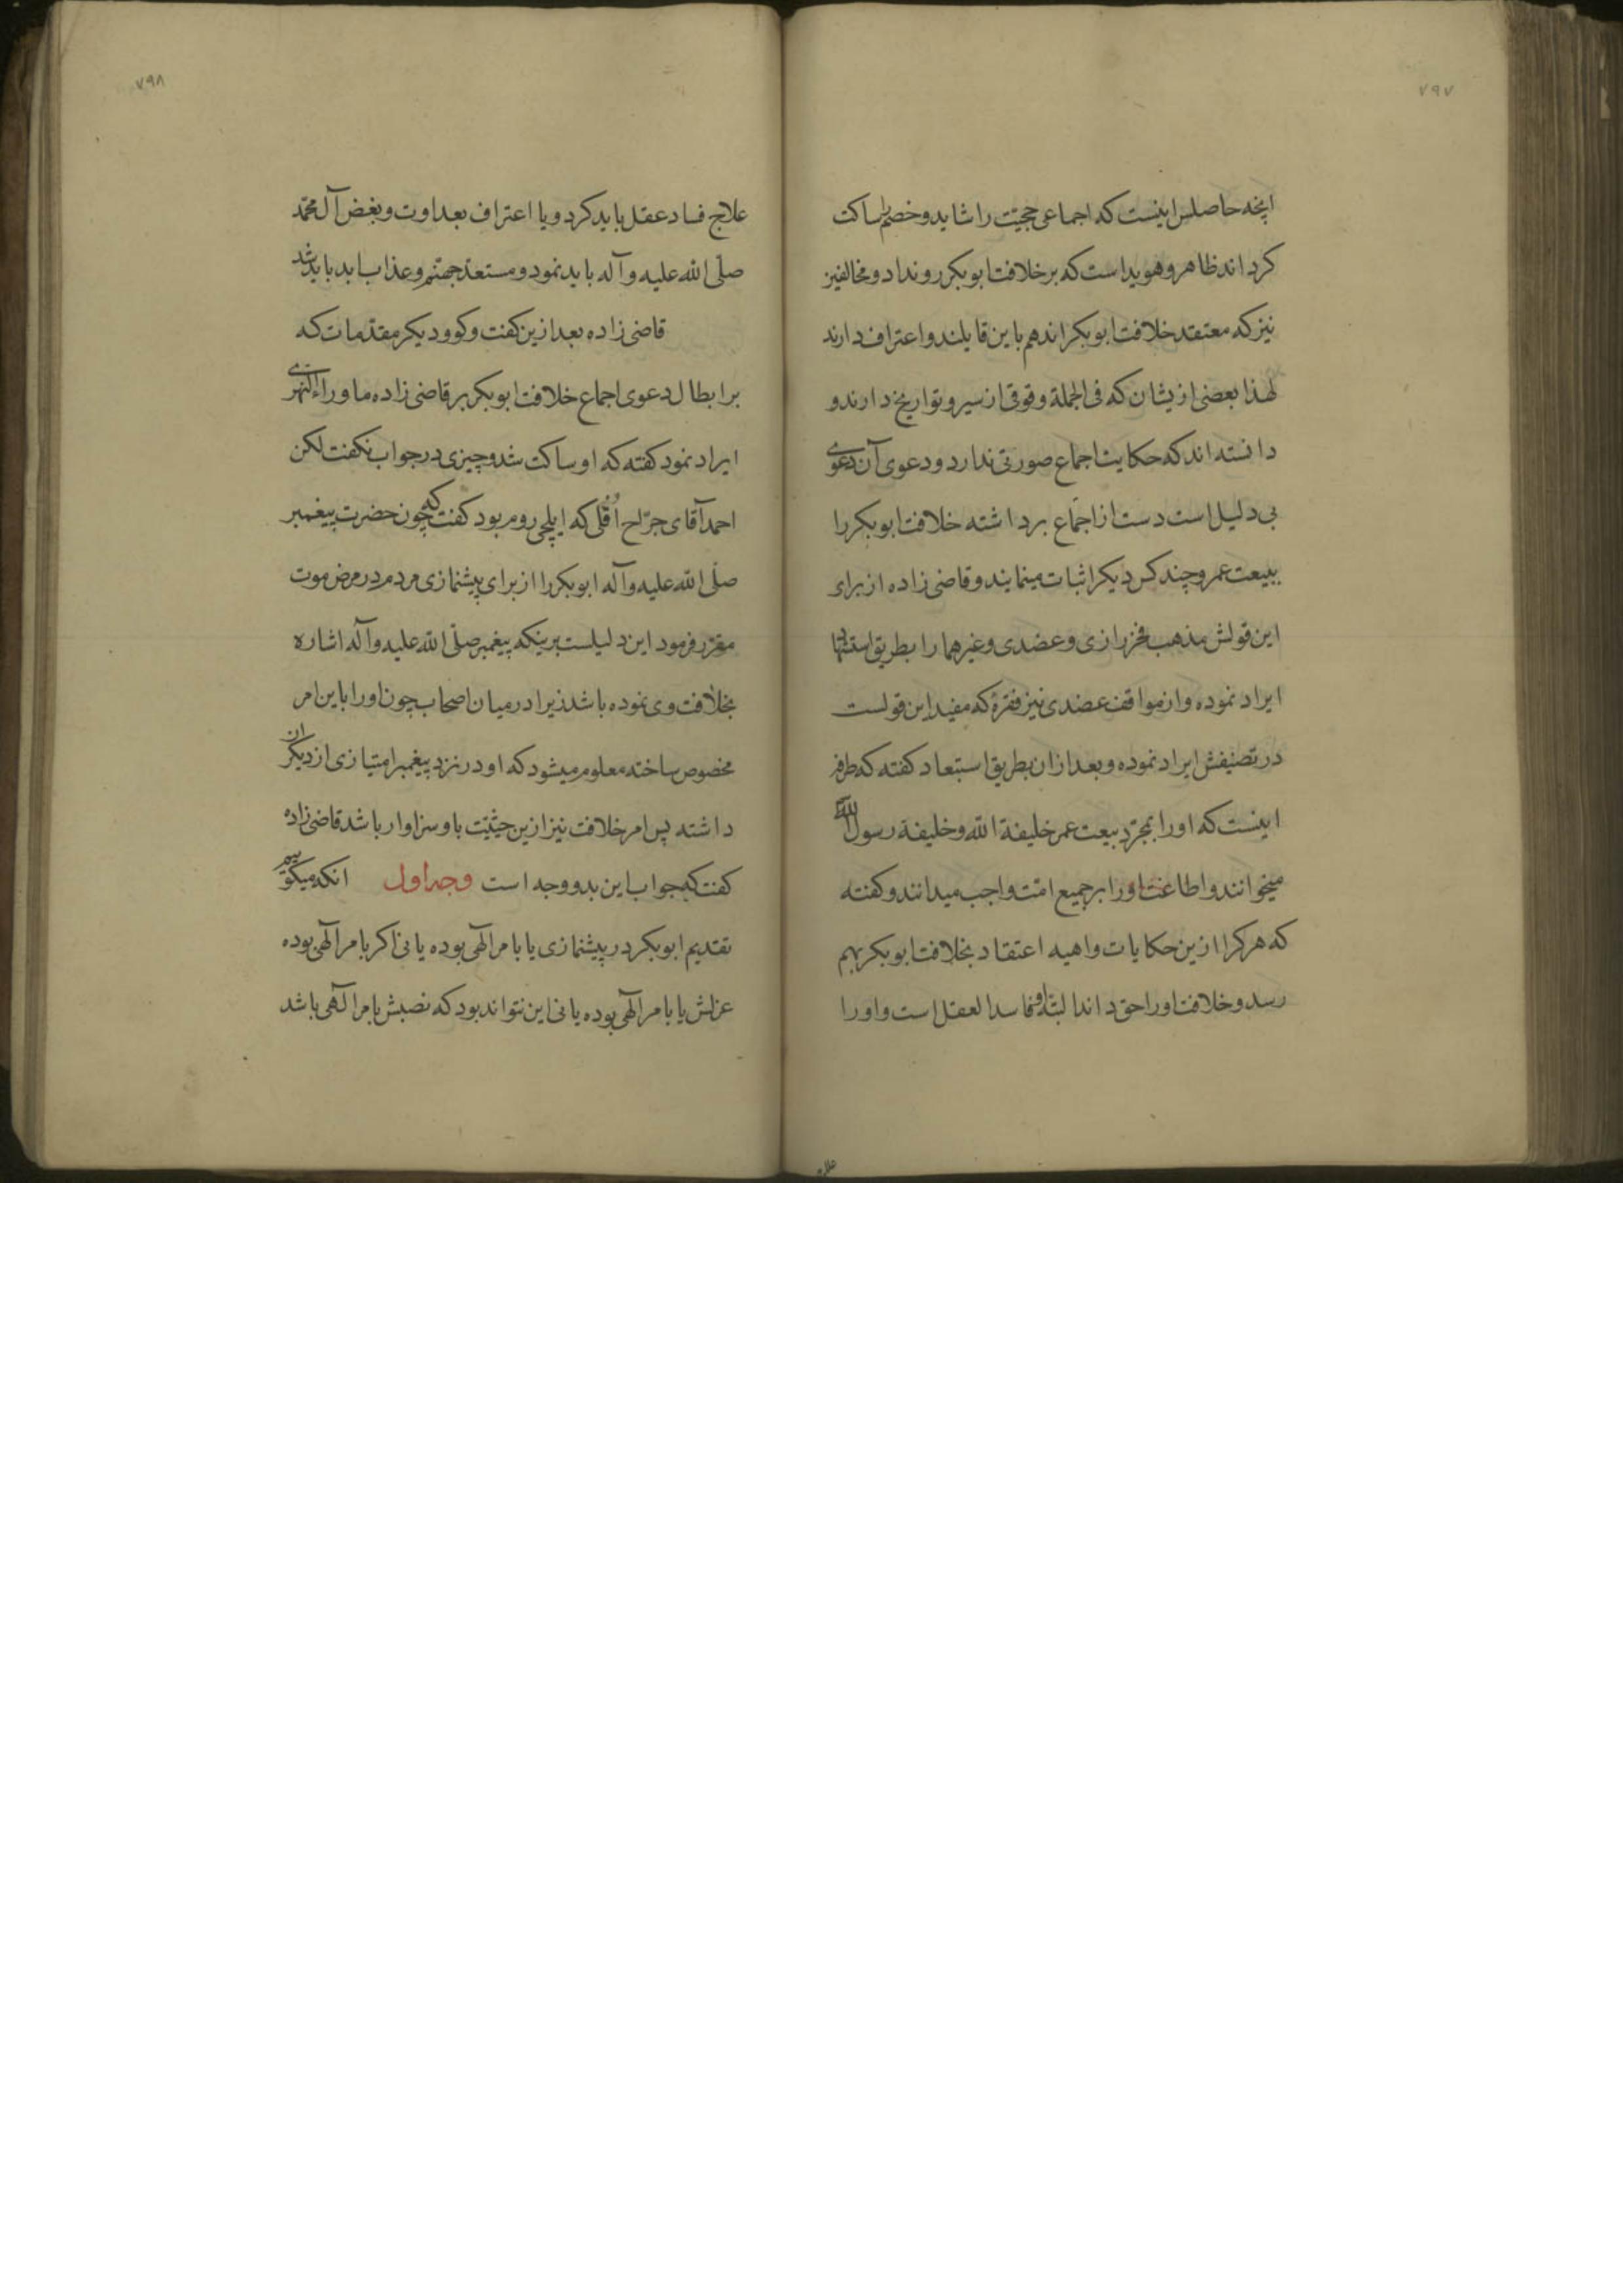 ۷۹۷
انچه حاصلش اینست که اجماعی حجیّت را شاید و خصم را ساکت
کرداند ظاهر و هویداست که بر خلافت ابوبکر رونداد و مخالفین
نیز که معتقد خلافت ابوبکراند هم باین قایلند و اعتراف دارند
لهذا بعضی ازیشان که فی الجملة وقوفی از سیر و تواریخ دارند و
دانسته اند که حکایت اجماع صورتی ندارد و دعوی آن دعوی
بی دلیل است دست از اجماع برداشته خلافت ابوبکر را
ببیعت عمر و چند کس دیکر اثبات مینمایند و قاضی زاده از برای
این قولش مذهب فخر رازی و عضدی و غیرهما را بطریق استشهاد
ایراد نموده و از مواقف عضدی نیز فقرۀ که مفید این قولست
در تصنیفش ایراد نموده و بعد ازان بطریق استبعاد کفته که طرفه
اینست که او را بمجرّد بیعت عمر خلیفة الله و خلیفة رسول الله
میخوانند و اطاعت او را بر جمیع امّت واجب میدانند و کفته
که هر کرا ازین حکایات واهیه اعتقاد بخلافت ابوبکر بهم
رسد و خلافت او را حق داند البتّه او فاسد العقل است و او را
علاج
۷۹۸
علاج فساد عقل باید کرد و یا اعتراف بعداوت و بغض آل محمّد
صلّی الله علیه و آله باید نمود و مستعدّ جهنّم و عذاب ابد باید شد
قاضی زاده بعد ازین کفت و کو و دیکر مقدّمات که
بر ابطال دعوی اجماع خلافت ابوبکر بر قاضی زاده ماوراء النهری
ایراد نمود کفته که او ساکت شد و چیزی در جواب نکفت لکن
احمد آقای جرّاح اُقلی که ایلچی روم بود کفت که چون حضرت پیغمبر
صلّی الله علیه و آله ابوبکر را از برای پیشنمازی مردم در مرض موت
مقرّر فرمود این دلیلست برینکه پیغمبر صلّی الله علیه و آله اشاره
بخلافت وی نموده باشد زیرا در میان اصحاب چون او را باین امر
مخصوص ساخته معلوم میشود که او در نزد پیغمبر امتیازی از دیکران
داشته پس امر خلافت نیز ازین حیثیّت باو سزاوار باشد قاضی زاده
کفت که جواب این بدو وجه است وجه اول انکه میکوییم
تقدیم ابوبکر در پیشنمازی یا بامر الهی بوده یا نی اکر بامر الهی بوده
عزلش یا بامر الهی بوده یا نی این نتواند بود که نصبش بامر الهی باشد